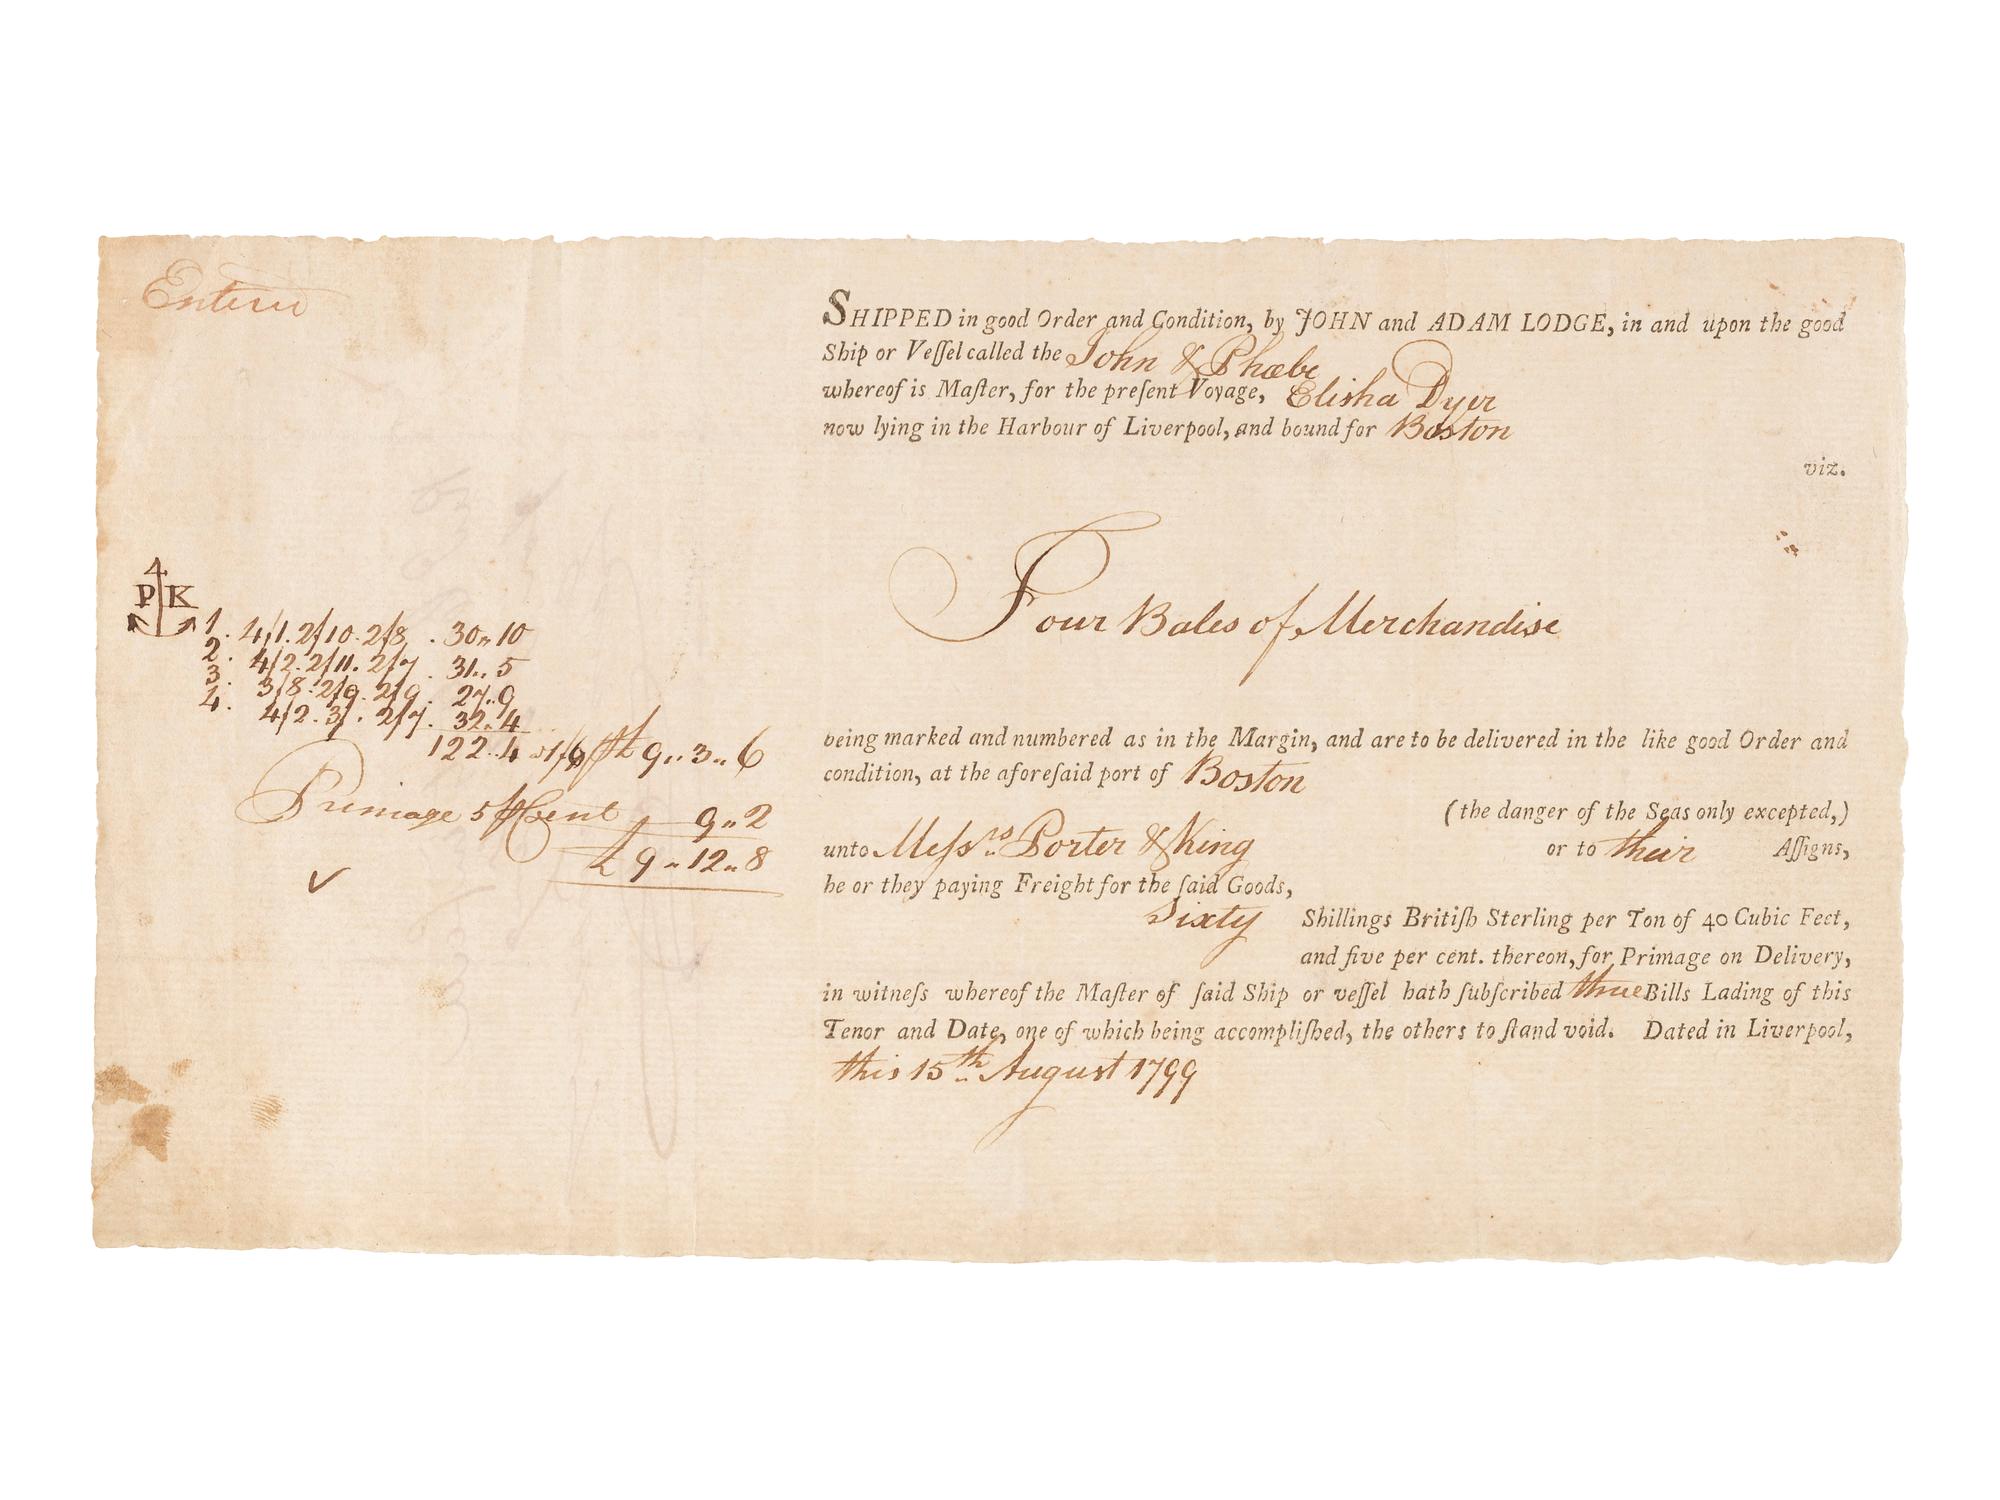 Enterd
SHIPPED in good Order and Condition, by JOHN and ADAM LODGE, in and upon the good
Ship or Veſſel called the John & Phœbe
whereof is Maſter, for the preſent Voyage, Elisha Dyer
now lying in the Harbour of Liverpool, and bound for Boston
viz.
Four Bales of Merchandise
P K
1. 4/1. 2/10. 2/8. 30〃10
2. 4/2. 2/11. 2/7. 31〃5
3. 3/8. 2/9. 2/9. 27〃9
4. 4/2. 3/. 2/7. 32〃4
122〃4 1/6 £ 9〃3〃6
Primage 5 ⅌ Cent 9〃2
£ 9〃12〃8
being marked and numbered as in the Margin, and are to be delivered in the like good Order and
condition, at the aforeſaid port of Boston
(the danger of the Seas only excepted,)
unto Meſsrs. Porter & King or to their Aſſigns,
he or they paying Freight for the ſaid Goods,
Sixty Shillings Britiſh Sterling per Ton of 40 Cubic Feet,
and five per cent. thereon, for Primage on Delivery,
in witneſs whereof the Maſter of ſaid Ship or veſſel hath ſubſcribed three Bills Lading of this
Tenor and Date, one of which being accompliſhed, the others to ſtand void. Dated in Liverpool,
this 15th. August 1799